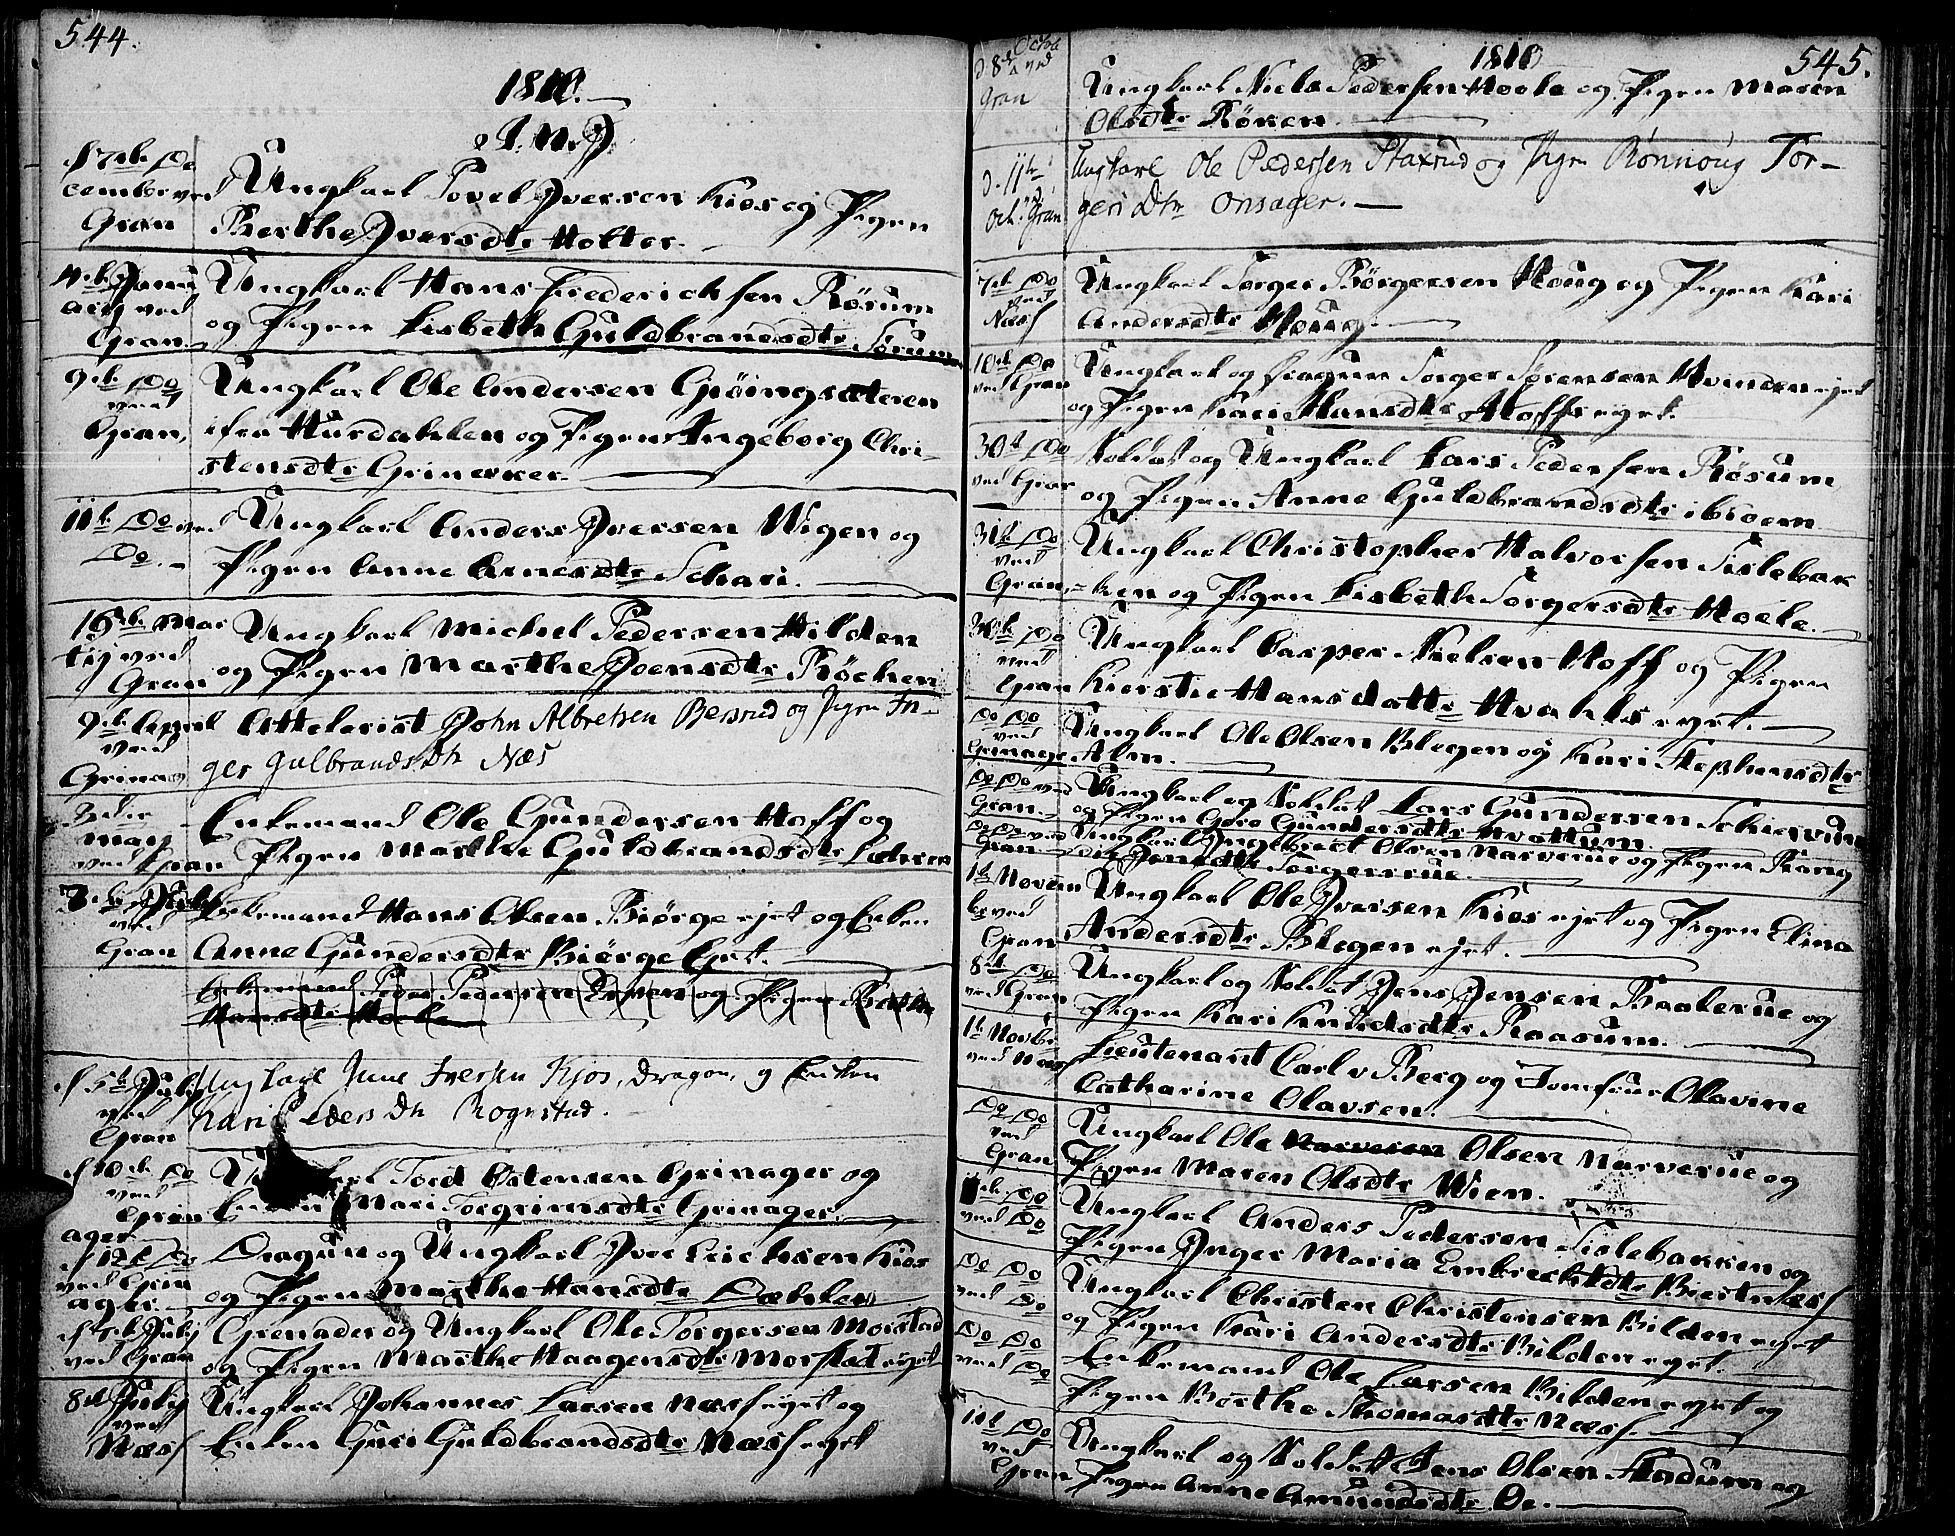 544.
1810.
I. N. J.
d 7de De
cember ved
Gran
Ungkarl Povel Iversen Kios og Pigen
Berthe Iversdtr Hotter.
4de Janu
ary ved
Gran
Ungkarl Hans Frederichsen Rösum
og Pigen Lisbeth Guldbrandsdtr Sörum
9de Do
ved
Gran,
Ungkarl Ole Andersen Gröingsæteren
ifra Hurdahlen og Pigen Ingeborg Chri-
stensdtr Grinaker.
11te Do ved
Do.
Ungkarl Anders Iversen Wigen og
Pigen Anne Arnesdtr Schari.
16de Mar
tij ved
Gran
Ungkarl Michel Pedersen Hilden
og Pigen Marthe Joensdtr Röchen
9de April
ved
Grinag
Attelerist John Albretsen Bersrud og Pigen In-
ger Gulbrands Dtr Næs
3die
May
ved Gran
Enkemand Ole Gundersen Hoff og
Pigen Marthe Guldbrandsdtr
July
ved
Gran
Enkemand Hans Olsen Biörge ejet og Enken
Anne Gundersdtr Biörge Eyet.
Enkemand Peder Pedersen og Pigen Berthe
Hansdtr
d 5te July
ved
Gran
Ungkarl Iversen Kjos, Dragon, og Enken
Kari Peders Dtr Rognstad.
d 10de Do
ved
Grin
ager
Ungkarl Tord Östensen Grinager og
Enken Mari Torgrimsdtr Grinager.
d 12te Do
ved Grin
ager
Dragun og Ungkarl Iver Erichsen Kios
og Pigen Marthe Hansdtr Dæhlen
d 7de July
ved Gran
Grenader og Ungkarl Ole Torgersen Morstad
og Pigen Marthe Haagensdtr Morstad eyet
8de July
ved
Næss
Ungkarl Johannes Larsen Næss eyet og
Enken Guri Guldbrandsdtr Næss eyet
1810
545.
d. 8de Octob
ved
Gran
Ungkarl Niels Pedersen Hoele og Pigen Maren
Olsdtr Röken.
d. 11te
Oct. ved Gran
Ungkarl Ole Pedersen Staxrud og Pigen Rönnoug Tor-
geri Dtr Onsager.
7de Do
ved
Næss
Ungkarl Torger Börgersen Houg og Pigen Kari
Andersdtr Houg.
10de Do
ved Gran
Ungkarl og Dragun Torger Sörensen Hvinden ejet
og Pigen Kari Hansdtr Hoffs eyet.
30te Do
ved Gran
Soldat og Ungkarl Lars Pedersen Rösum
og Pigen Anne Guldbrandsdtr ibidem
31te Do
ved
Gran
Ungkarl Christopher Halvorsen Tislebak
ken og Pigen Lisbeth Torgersdtr Hoele.
30te Do
ved
Gran
Ungkarl Casper Nielsen Hoff og Pigen
Kierstie Hansdattr Hvahls eyet.
Do Do
ved
Grinager
Ungkarl Ole Olsen Blegen og Kari Stephensdtr
Alm.
Do Do ved
Gran
Ungkarl og Soldat Lars Gundersen Schiervum
og Pigen Goro Gundersdtr Hvattum
Do Do ved
Gran
Ungkarl Ingebret Olsen Narverue og Pigen Rang
di Jensdtr Torgersrue.
1te Novem
ber ved
Gran
Ungkarl Ole Iversen Kios ejet og Pigen Elina
Andersdtr Blegen ejet.
8de Do
ved Gran
Ungkarl og Soldat Jens Jensen Raakerue og
Pigen Kari Knudsdtr Raasum.
1te Novbr
ved Næss
Lieutenant Carl v Berg og Jomfrue Olavine
Catharine Olavsen.
Do Do
ved
Gran
Ungkarl Ole Narvesen Olsen Narverue og
Pigen Maren Olsdtr Wien.
Do
ved Do
Ungkarl Anders Pedersen Tislebakken og
Pigen Inger Maria Embrechtsdtr Biertnæss
Do Do
ved Do
Ungkarl Christen Christensen Bilden eyet
og Pigen Kari Andersdtr Bilden eyet.
Do Do
ved Do
Enkemand Ole Larsen Bilden eyet og
Pigen Berthe Thomasdtr Næss.
Do
ved
Gran
Ungkarl og Soldat Jens Olsen Stadum og
Pigen Anne Amundsdtr Do.